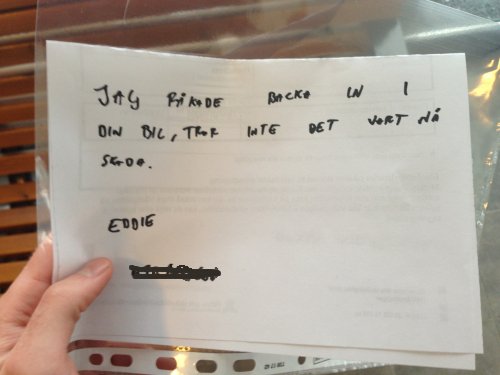 JAG RÅKADE BACKA IN I
DIN BIL, TROR INTE DET VART NÅ
SKADA.
EDDIE